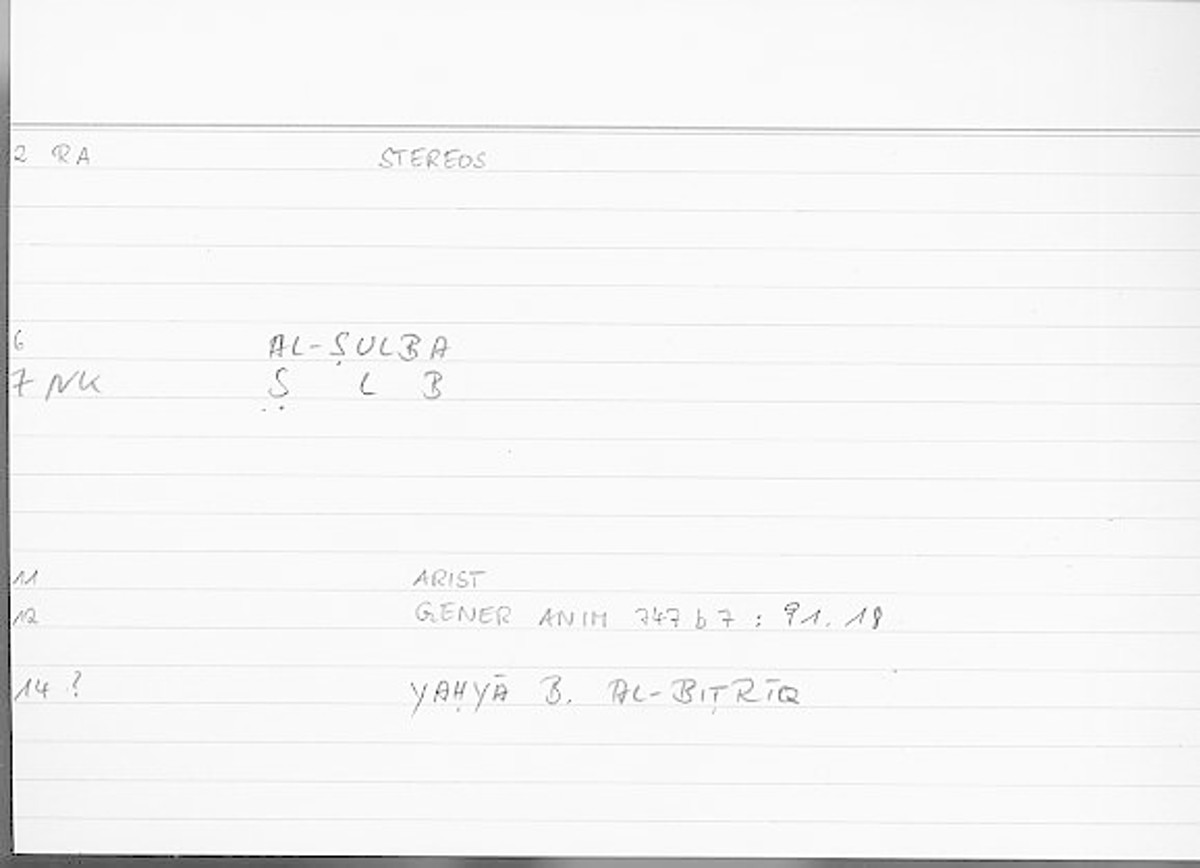 2 RA STEREOS
6 AL-ṢULBA
7 NK Ṣ L B
11 ARIST
12 GENER ANIM 747 b 7 : 91. 18
14 ? YAḤYĀ B. AL-BIṬRĪQ